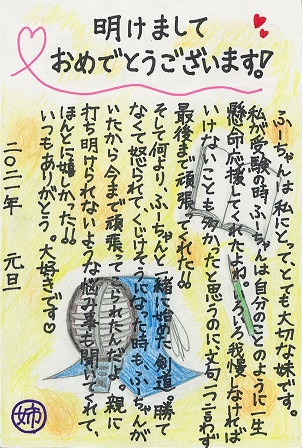 明けまして
おめでとうございます!
ふーちゃんは私にとって、とても大切な妹です。
私が受験の時、ふーちゃんは自分のことのように一生
懸命応援してくれたよね。いろいろ我慢しなければ
いけないことも多かったと思うのに、文句一つ言わず
最後まで頑張ってくれた!!
そして何より、ふーちゃんと一緒に始めた剣道。勝て
なくて怒られて、くじけそうになった時も、ふーちゃんが
いたから今まで頑張ってこられたんだよ。親に
打ち明けられないような悩み事も聞いてくれて、
ほんとに嬉しかった!!
いつもありがとう。大好きです♡
二〇二一年 元旦
姉